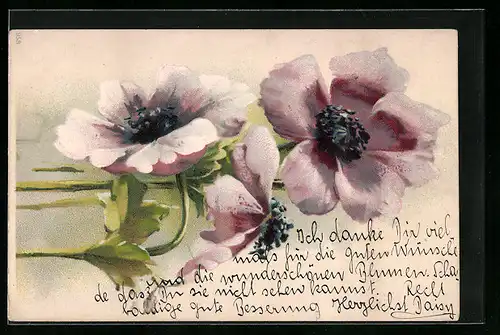 Ich danke Dir viel
mals für die guten Wünsche
und die wunderschönen Blumen. Scha
de dass Du sie nicht sehen kannst. Recht
baldige gute Besserung Herzlichst Daisy